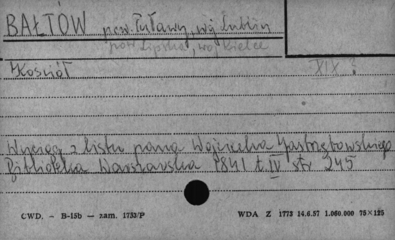 BAŁTÓW pow. Puławy, wój. Lublin
pow. Lipsko, woj. Kielce
Kościół XIX ?
Wyciąg z listu pana Wojciecha Jastrzębowskiego
Biblioteka Warszawska 1841 t. IV str. 245
CWD. - B-15b — zam. 1732/P WDA Z 1773 14.6.57 1.060.000 75×125